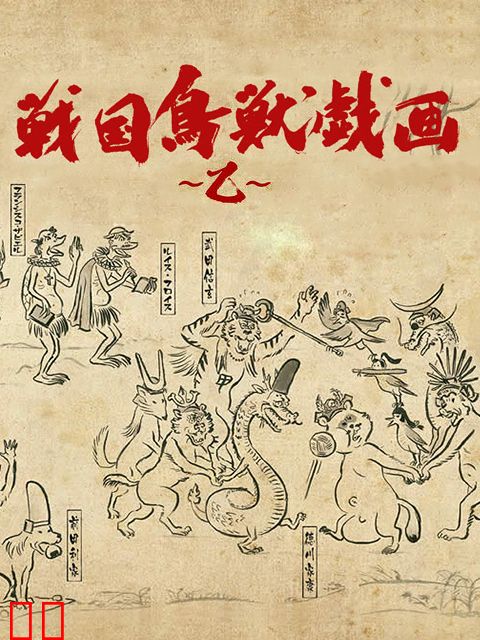 戦国鳥獣戯画
～乙～
フランシスコ・ザビエル
ルイス・フロイス
武田信玄
前田利家
徳川家康